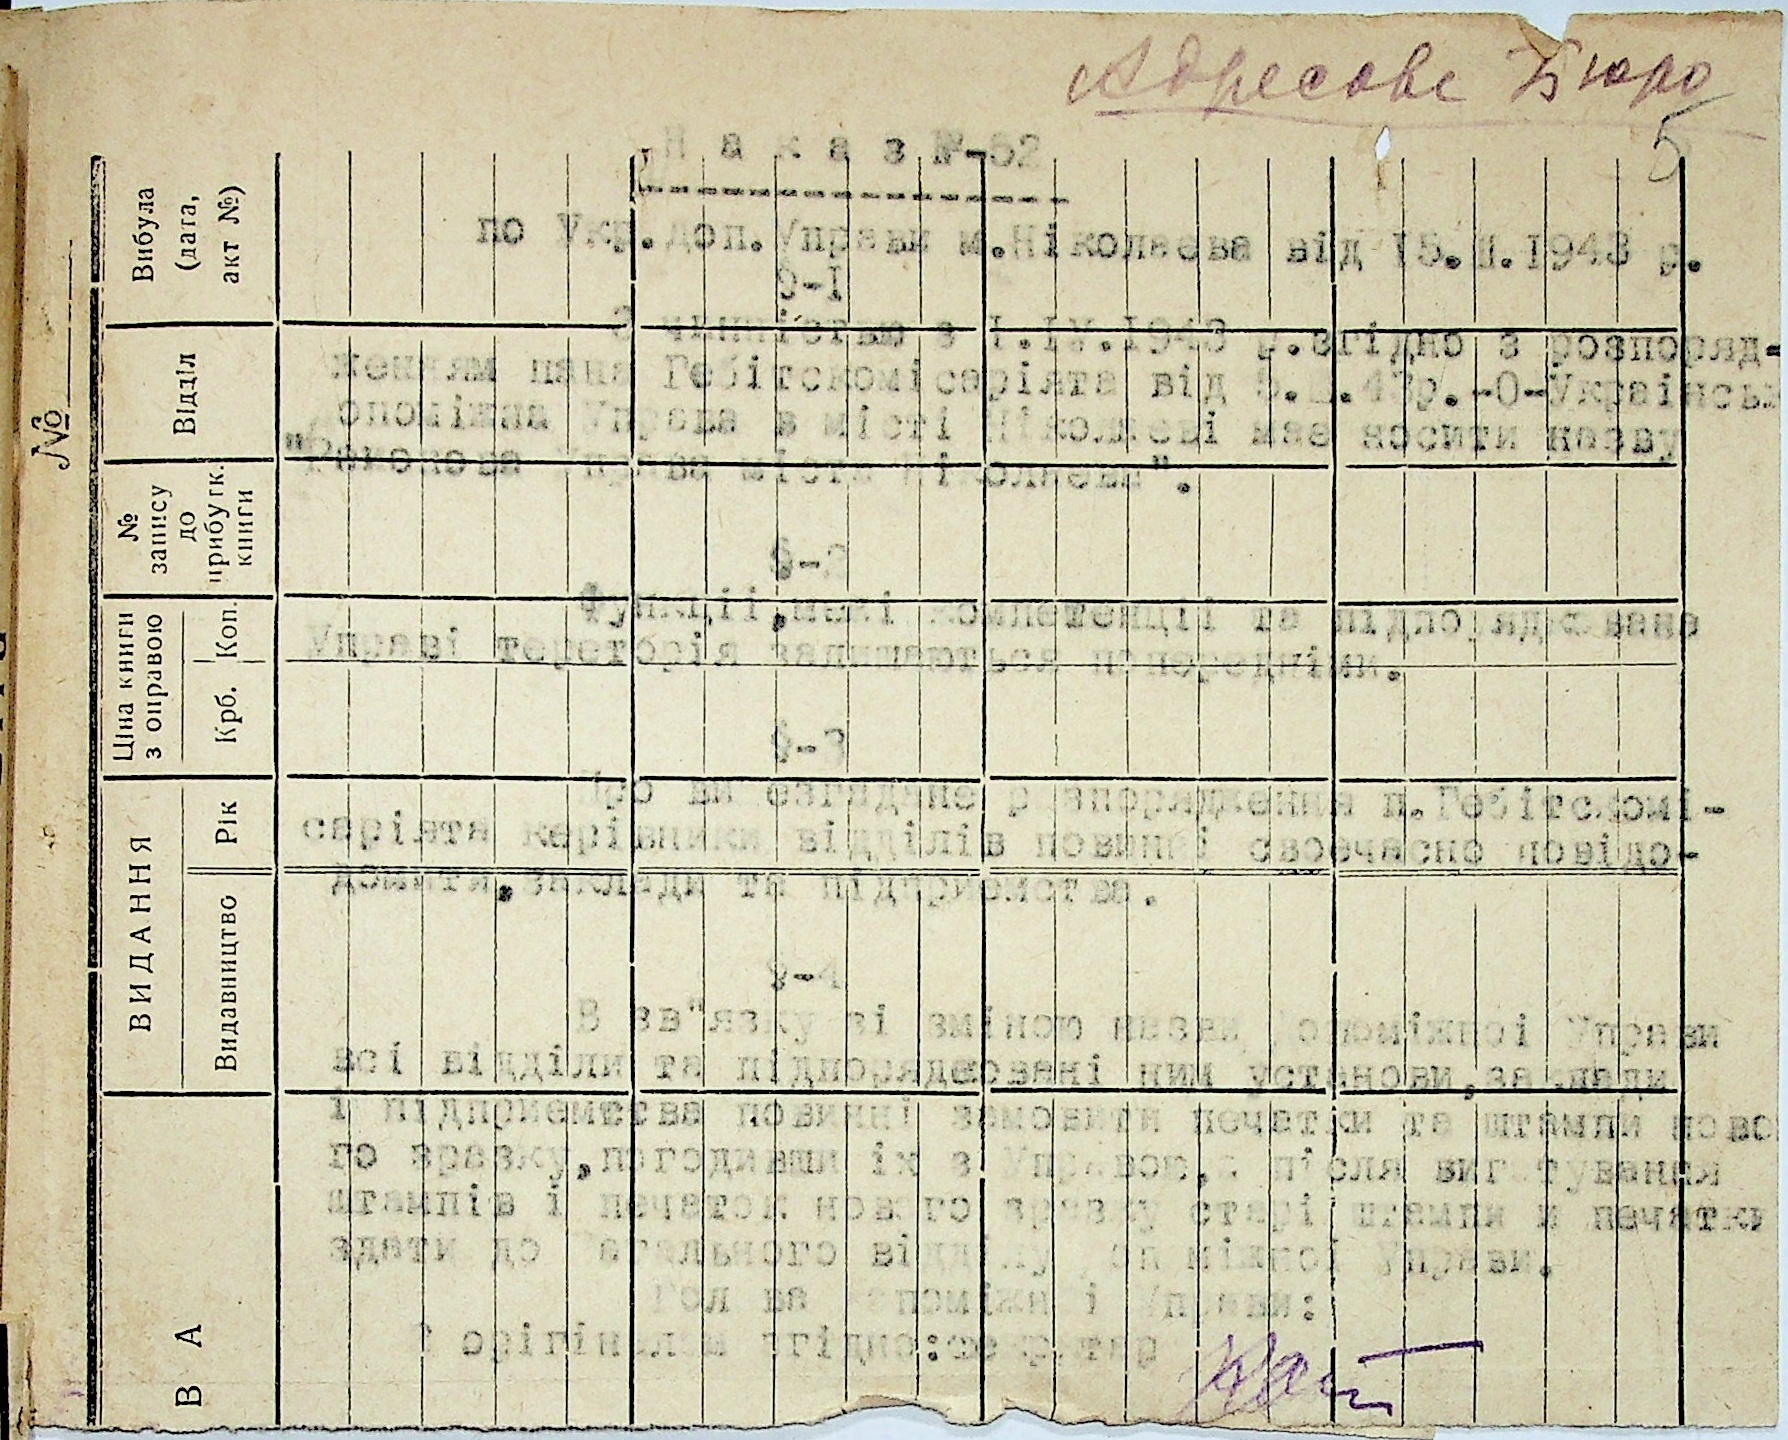 Адресове Бюро
5
Наказ №-62
по Укр.доп.Управи м.Ніколаева від 15.ІІ.1943 р.
§-І
З чинністью з І.ІV.1943 р.згідно з розпоряд-
женням пана Гебітскомісаріята від 5. .43р.-0-Українська
опоміжна Управа в місті Ніколаеві має носити назву
Управа міста Ніколаева".
§-2
Функції, компетенції та підпорядкована
Управі тереторія залишаються попередніми.
§-3
Про вищезгадане розпорядження п.Гебітскомі-
саріята керівники відділів повинні своєчасно повідо-
домити,заклади та підприємства.
§-4
В зв"язку зі зміною назви Допоміжної Управи
всі відділи та підпорядковані ним установи,заклади
і підприємства повинні замовити печатки та штампи ново
го зразку,погодивши їх з Управою,а після виготування
штампів і печаток нового зразку старі штампи и печатки
здати до Загального відділу Допоміжної Управи.
Голова Допоміжної Управи:
З орігіналом згідно:секретар
№
Вибула (дата, акт №)
Відділ
№ запису до прибутк. книги
Ціна книги з оправою
Крб. Коп.
ВИДАННЯ
Рік
Видавництво
В А